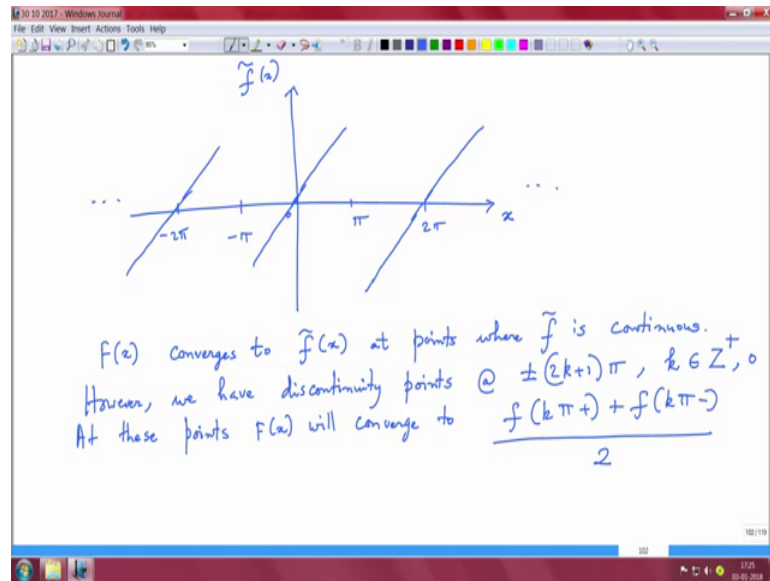 30 10 2017 - Windows Journal
File Edit View Insert Actions Tools Help
96%
f̃(x)
... -2π -π 0 π 2π x ...
F(x) converges to f̃(x) at points where f̃ is continuous.
However, we have discontinuity points @ ±(2k+1)π, k ∈ Z⁺, 0
At these points F(x) will converge to f(kπ+) + f(kπ-)
2
102/119
102
17:25
03-01-2018